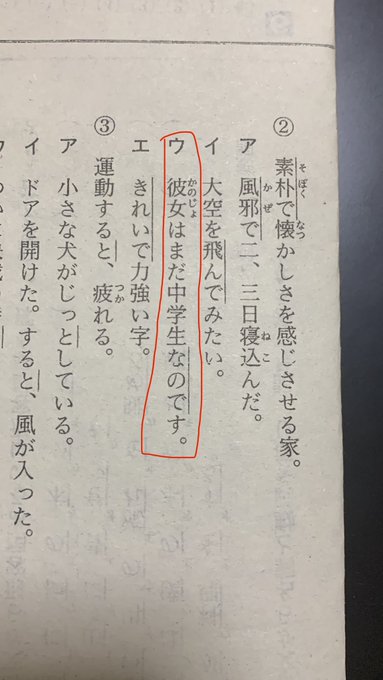 ② 素朴で懐かしさを感じさせる家。
ア 風邪で二、三日寝込んだ。
イ 大空を飛んでみたい。
ウ 彼女はまだ中学生なのです。
エ きれいで力強い字。
③ 運動すると、疲れる。
ア 小さな犬がじっとしている。
イ ドアを開けた。すると、風が入った。